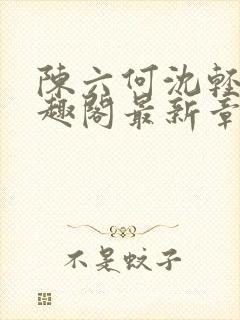 陳六何沈輕
趣閣最新章
不是蚊子